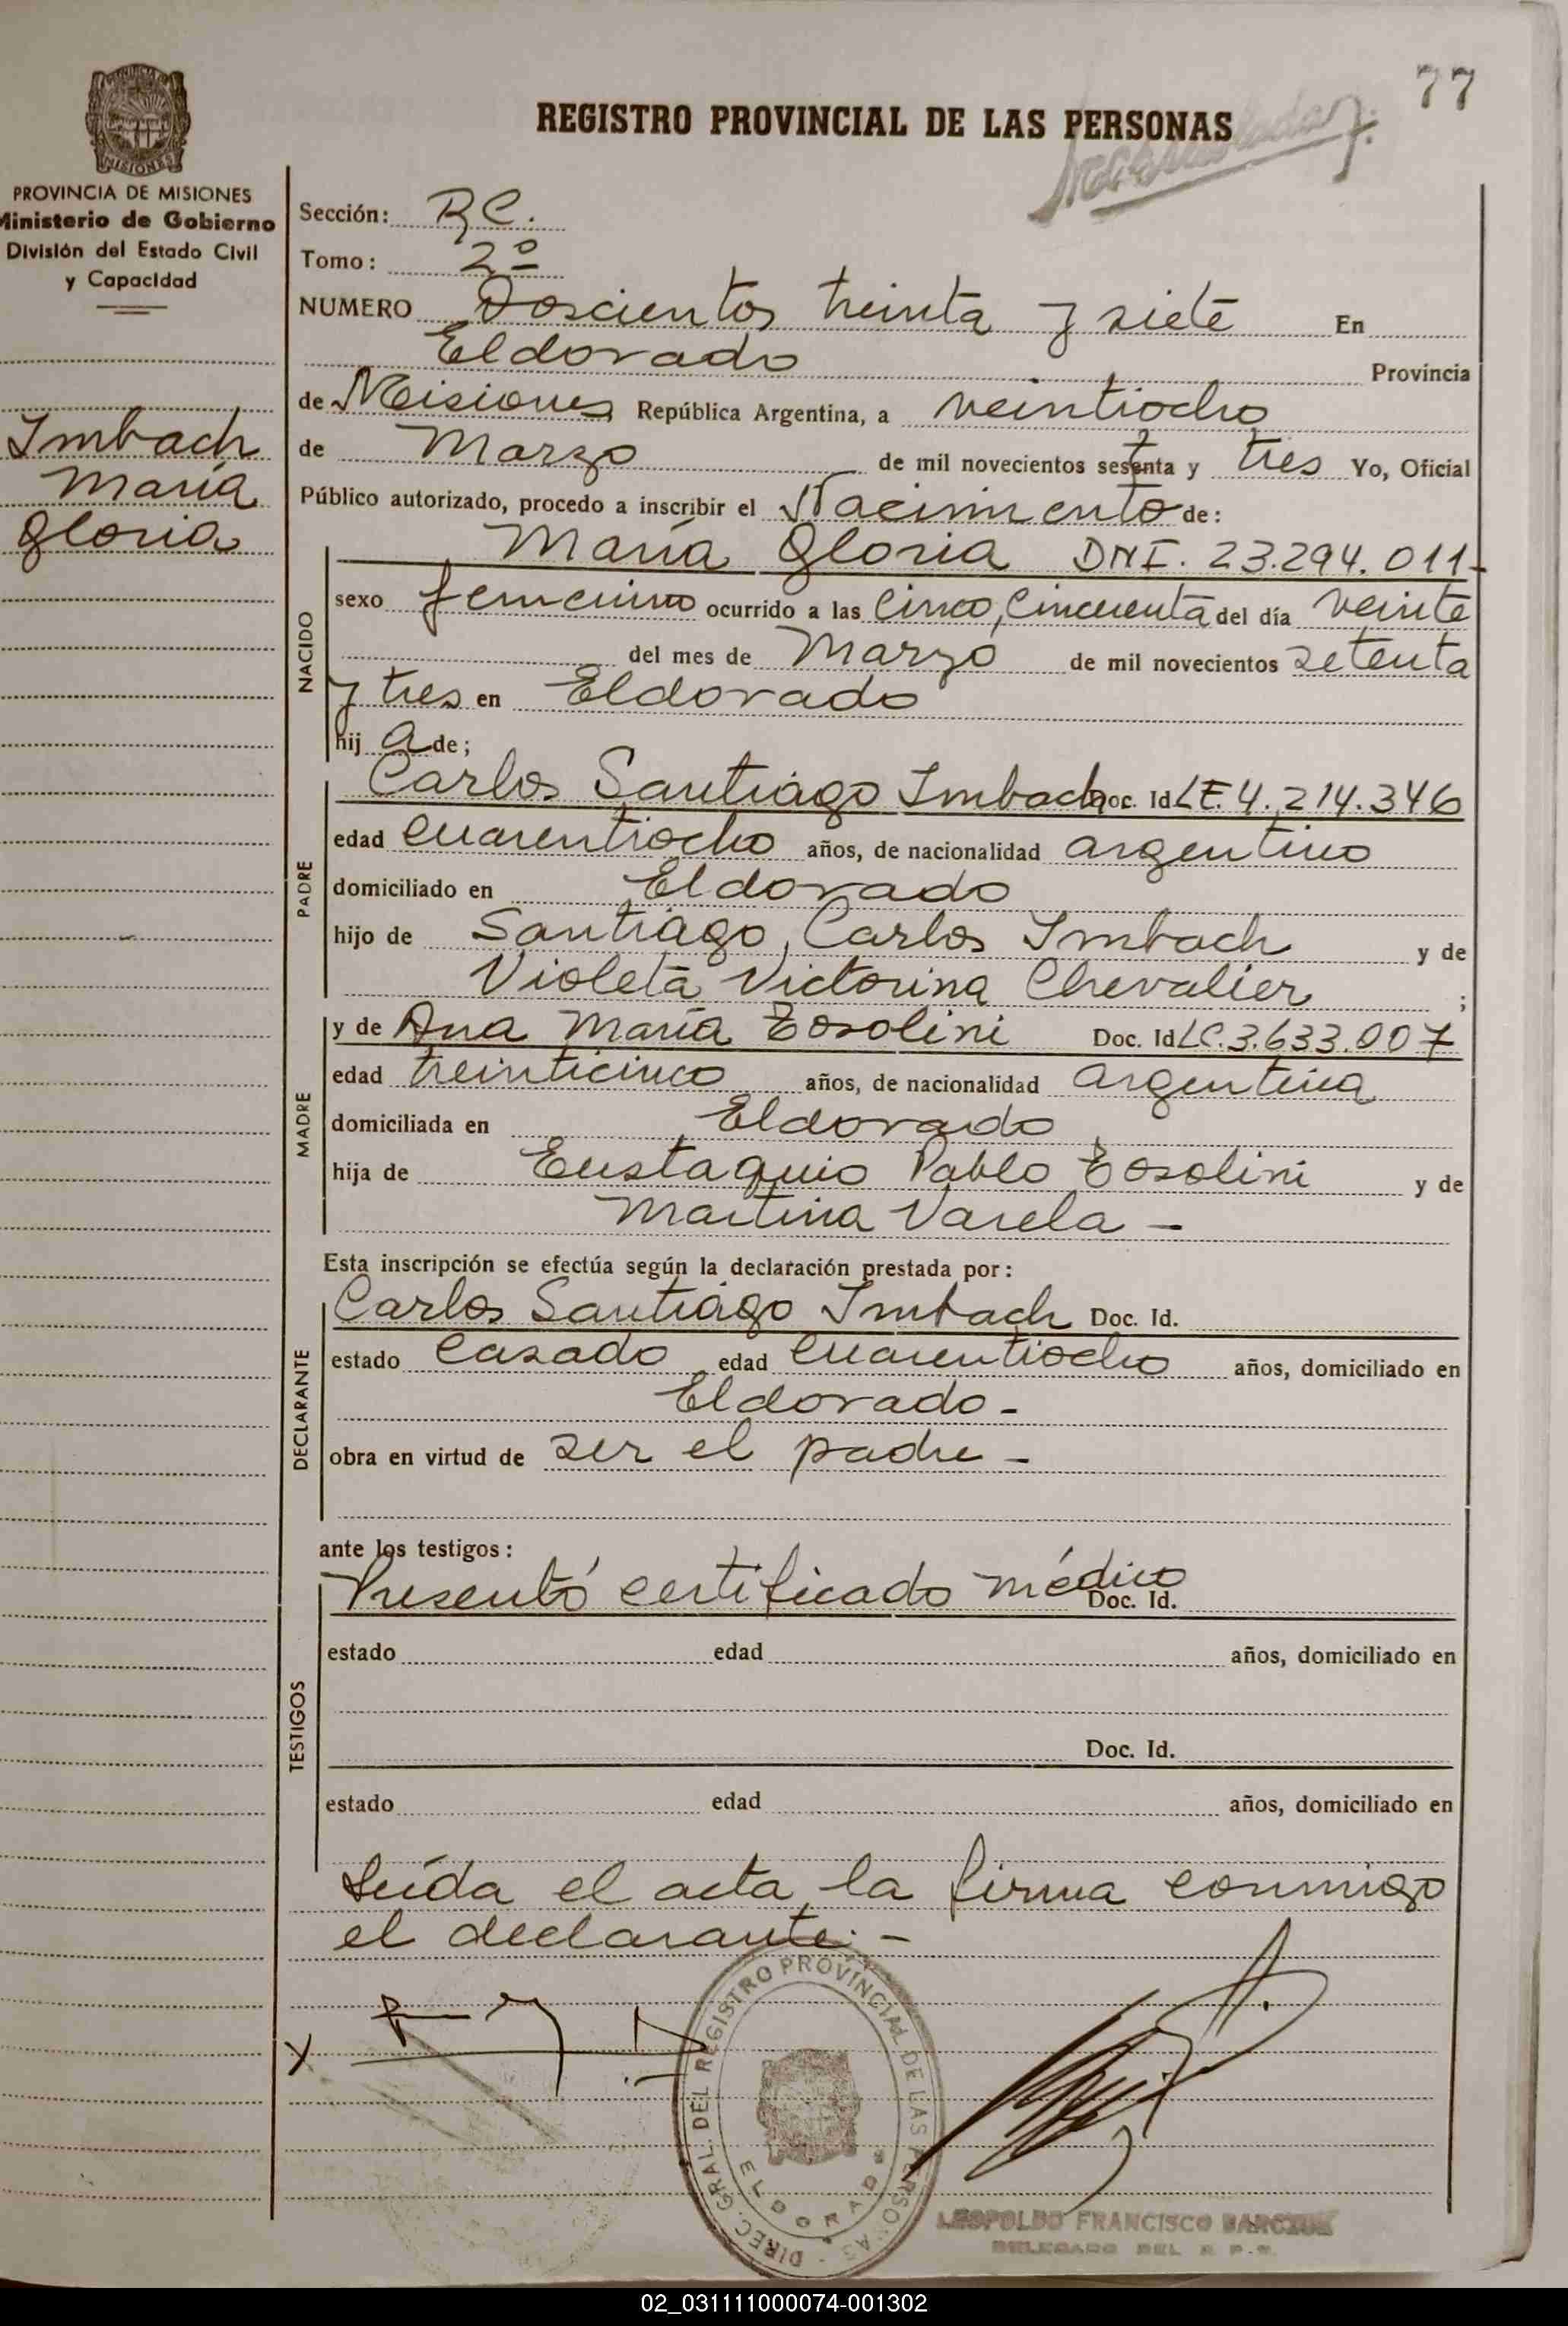 77
REGISTRO PROVINCIAL DE LAS PERSONAS
MISIONES
PROVINCIA DE MISIONES
Ministerio de Gobierno
División del Estado Civil
y Capacidad
Imbach
María
Gloria
Sección: R.C.
Tomo: 2º
NUMERO Doscientos treinta y siete En
Eldorado Provincia
de Misiones República Argentina, a veintiocho
de Marzo de mil novecientos setenta y tres Yo, Oficial
Público autorizado, procedo a inscribir el Nacimiento de:
NACIDO
María Gloria DNI. 23.294.011-
sexo femenino ocurrido a las Cinco, Cincuenta del día veinte
del mes de Marzo de mil novecientos setenta
y tres en Eldorado
hij a de;
PADRE
Carlos Santiago Imbach Doc. Id LE. 4.214.346
edad cuarentiocho años, de nacionalidad argentino
domiciliado en Eldorado
hijo de Santiago Carlos Imbach y de
Violeta Victorina Chevalier ;
MADRE
y de Ana María Tosolini Doc. Id LC. 3.633.007
edad treinticinco años, de nacionalidad argentina
domiciliada en Eldorado
hija de Eustaquio Pablo Tosolini y de
Martina Varela -
Esta inscripción se efectúa según la declaración prestada por:
DECLARANTE
Carlos Santiago Imbach Doc. Id.
estado casado edad cuarentiocho años, domiciliado en
Eldorado-
obra en virtud de ser el padre -
ante los testigos:
TESTIGOS
Presentó certificado médico Doc. Id.
estado edad años, domiciliado en
Doc. Id.
estado edad años, domiciliado en
Leída el acta, la firma conmigo
el declarante.-
X
DIREC. GRAL. DEL REGISTRO PROVINCIAL DE LAS PERSONAS
ELDORADO
LEOPOLDO FRANCISCO
DELEGADO DEL R. P. P.
02_031111000074-001302